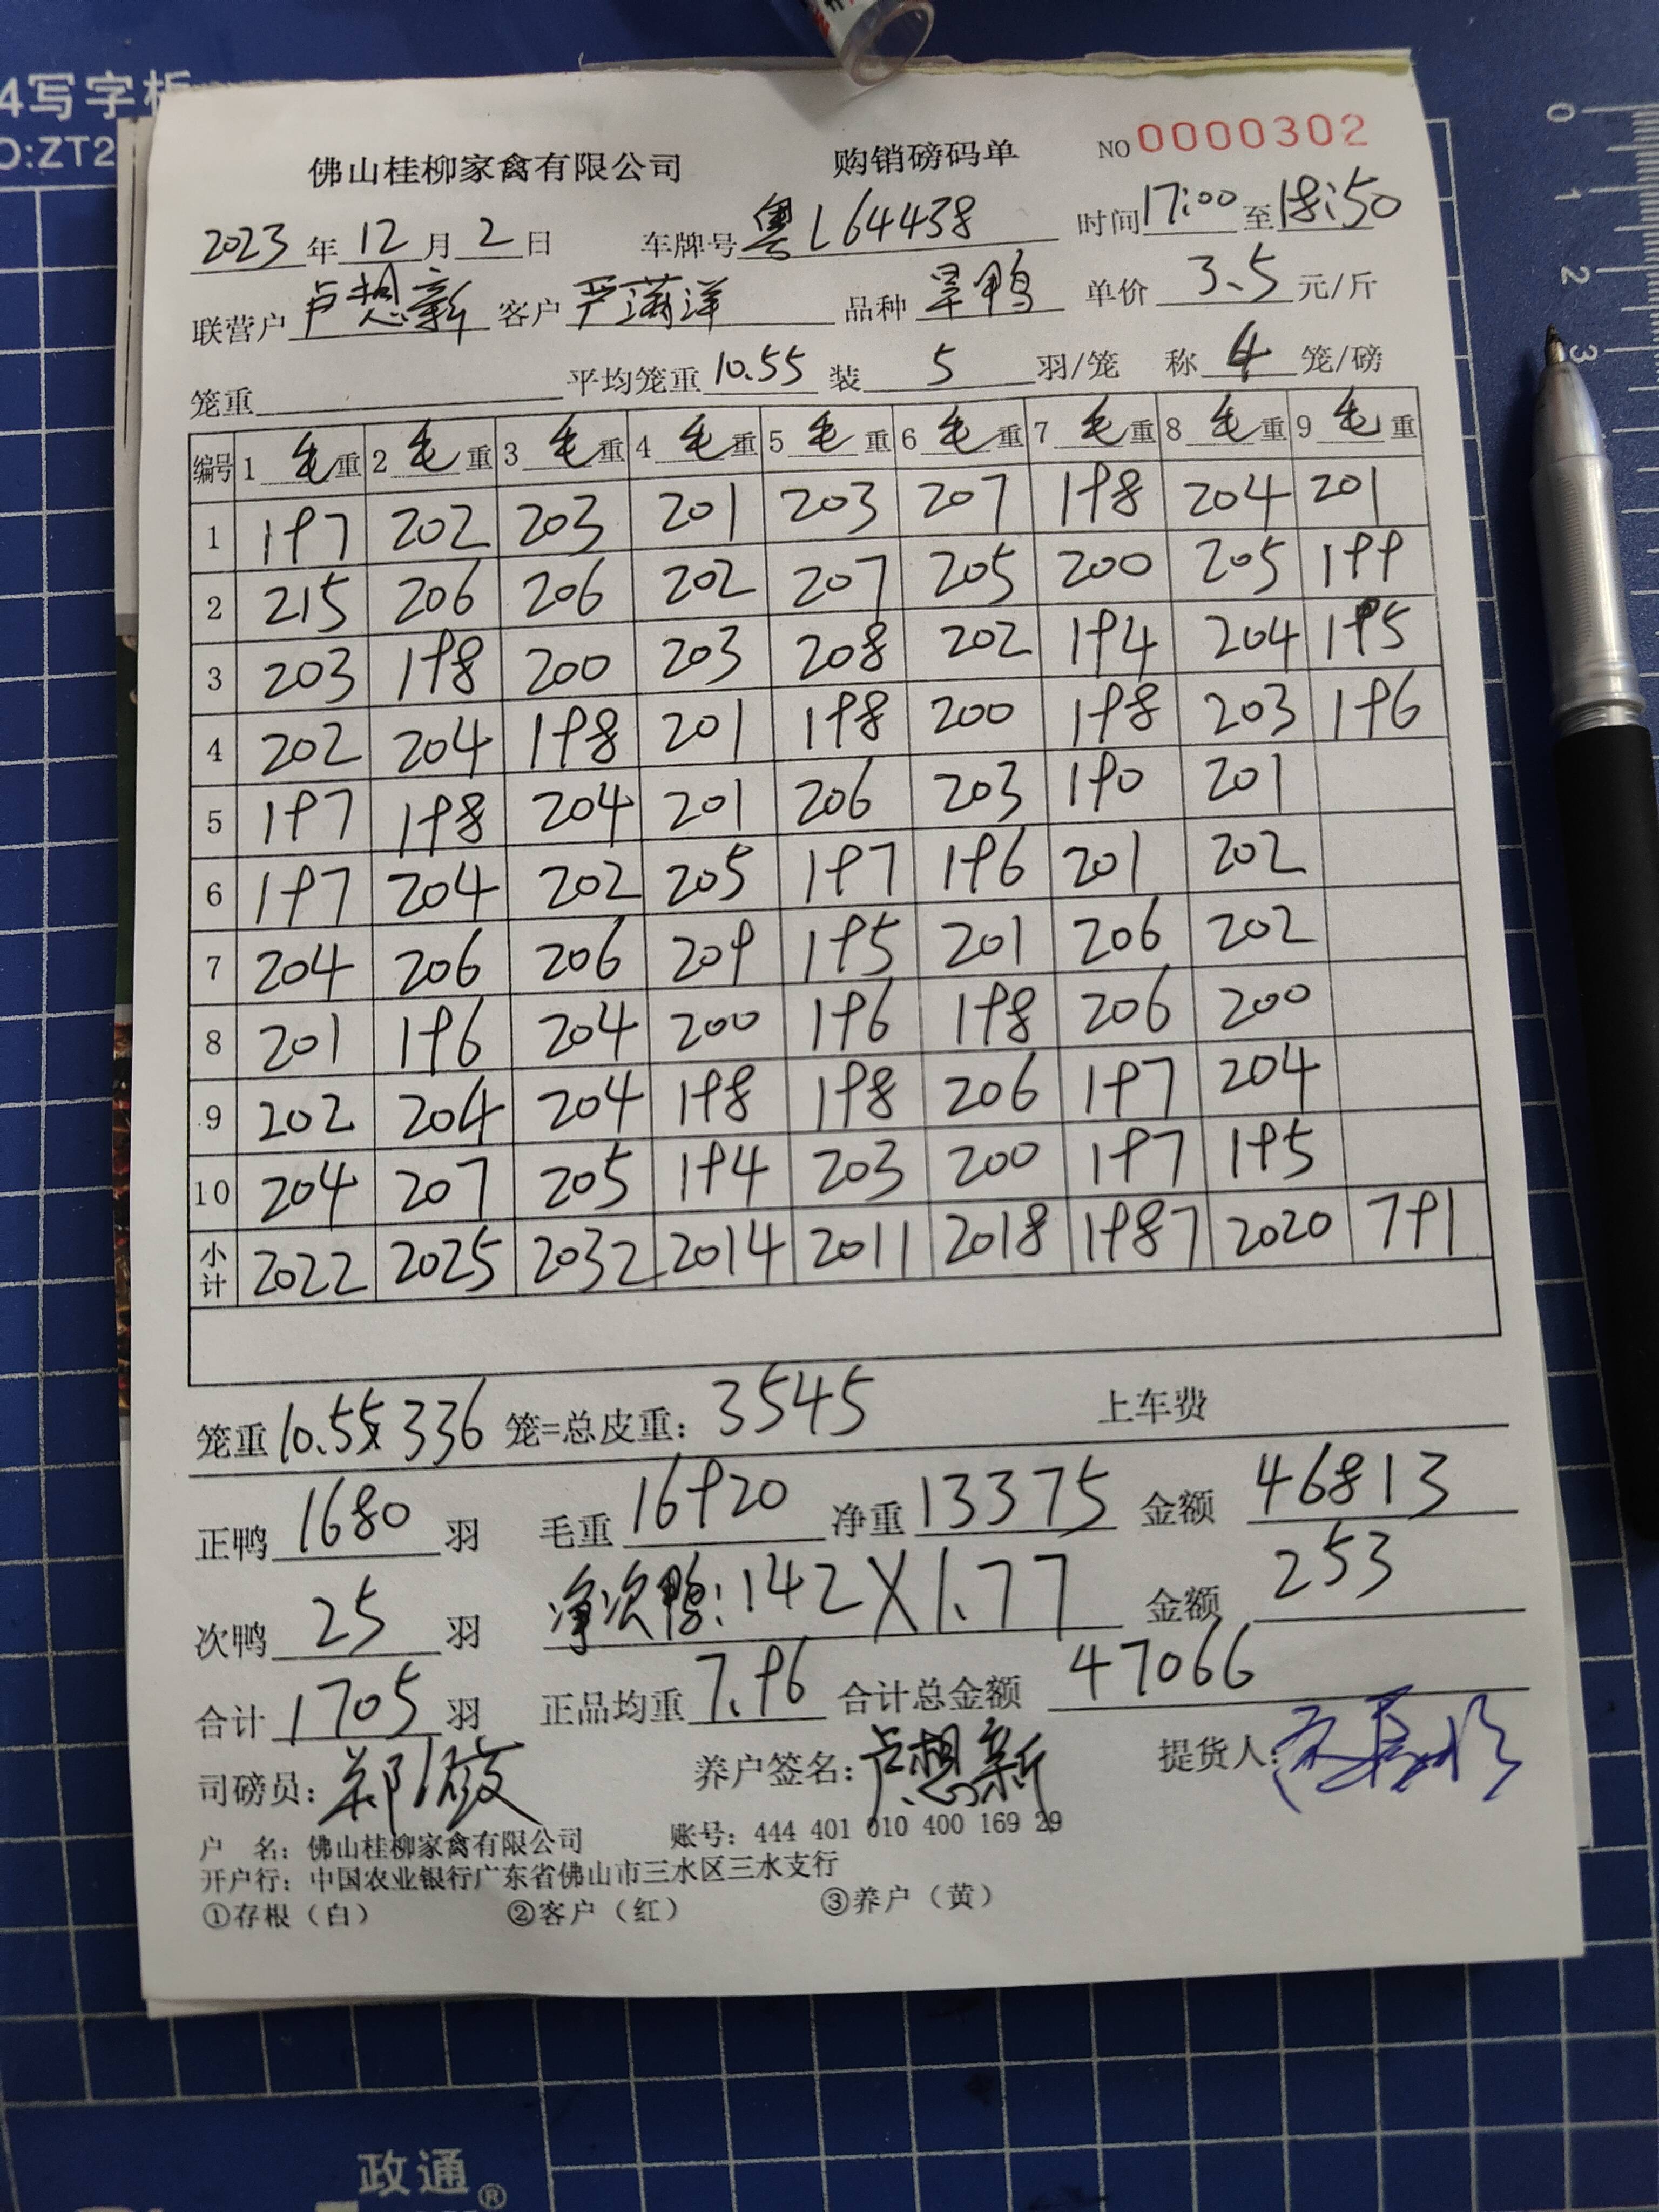 4写字板
O:ZT2
佛山桂柳家禽有限公司 购销磅码单 NO 0000302
2023年12月2日 车牌号粤L64438 时间17:00至18:50
联营户卢想新 客户严满洋 品种旱鸭 单价3.5元/斤
笼重 平均笼重10.55装5羽/笼 称4笼/磅
编号 1毛重 2毛重 3毛重 4毛重 5毛重 6毛重 7毛重 8毛重 9毛重
1 197 202 203 201 203 207 198 204 201
2 215 206 206 202 207 205 200 205 199
3 203 198 200 203 208 202 194 204 195
4 202 204 198 201 198 200 198 203 196
5 197 198 204 201 206 203 190 201
6 197 204 202 205 197 196 201 202
7 204 206 206 209 195 201 206 202
8 201 196 204 200 196 198 206 200
9 202 204 204 198 198 206 197 204
10 204 207 205 194 203 200 197 195
小计 2022 2025 2032 2014 2011 2018 1987 2020 791
笼重10.55x336笼=总皮重:3545 上车费
正鸭1680羽 毛重16920净重13375金额46813
次鸭25羽 净次鸭:142X1.77金额253
合计1705羽 正品均重7.96合计总金额47066
司磅员: 养户签名:卢想新 提货人:
户 名:佛山桂柳家禽有限公司 账号:444 401 010 400 169 29
开户行:中国农业银行广东省佛山市三水区三水支行
①存根(白) ②客户(红) ③养户(黄)
0
1
2
3
政通®